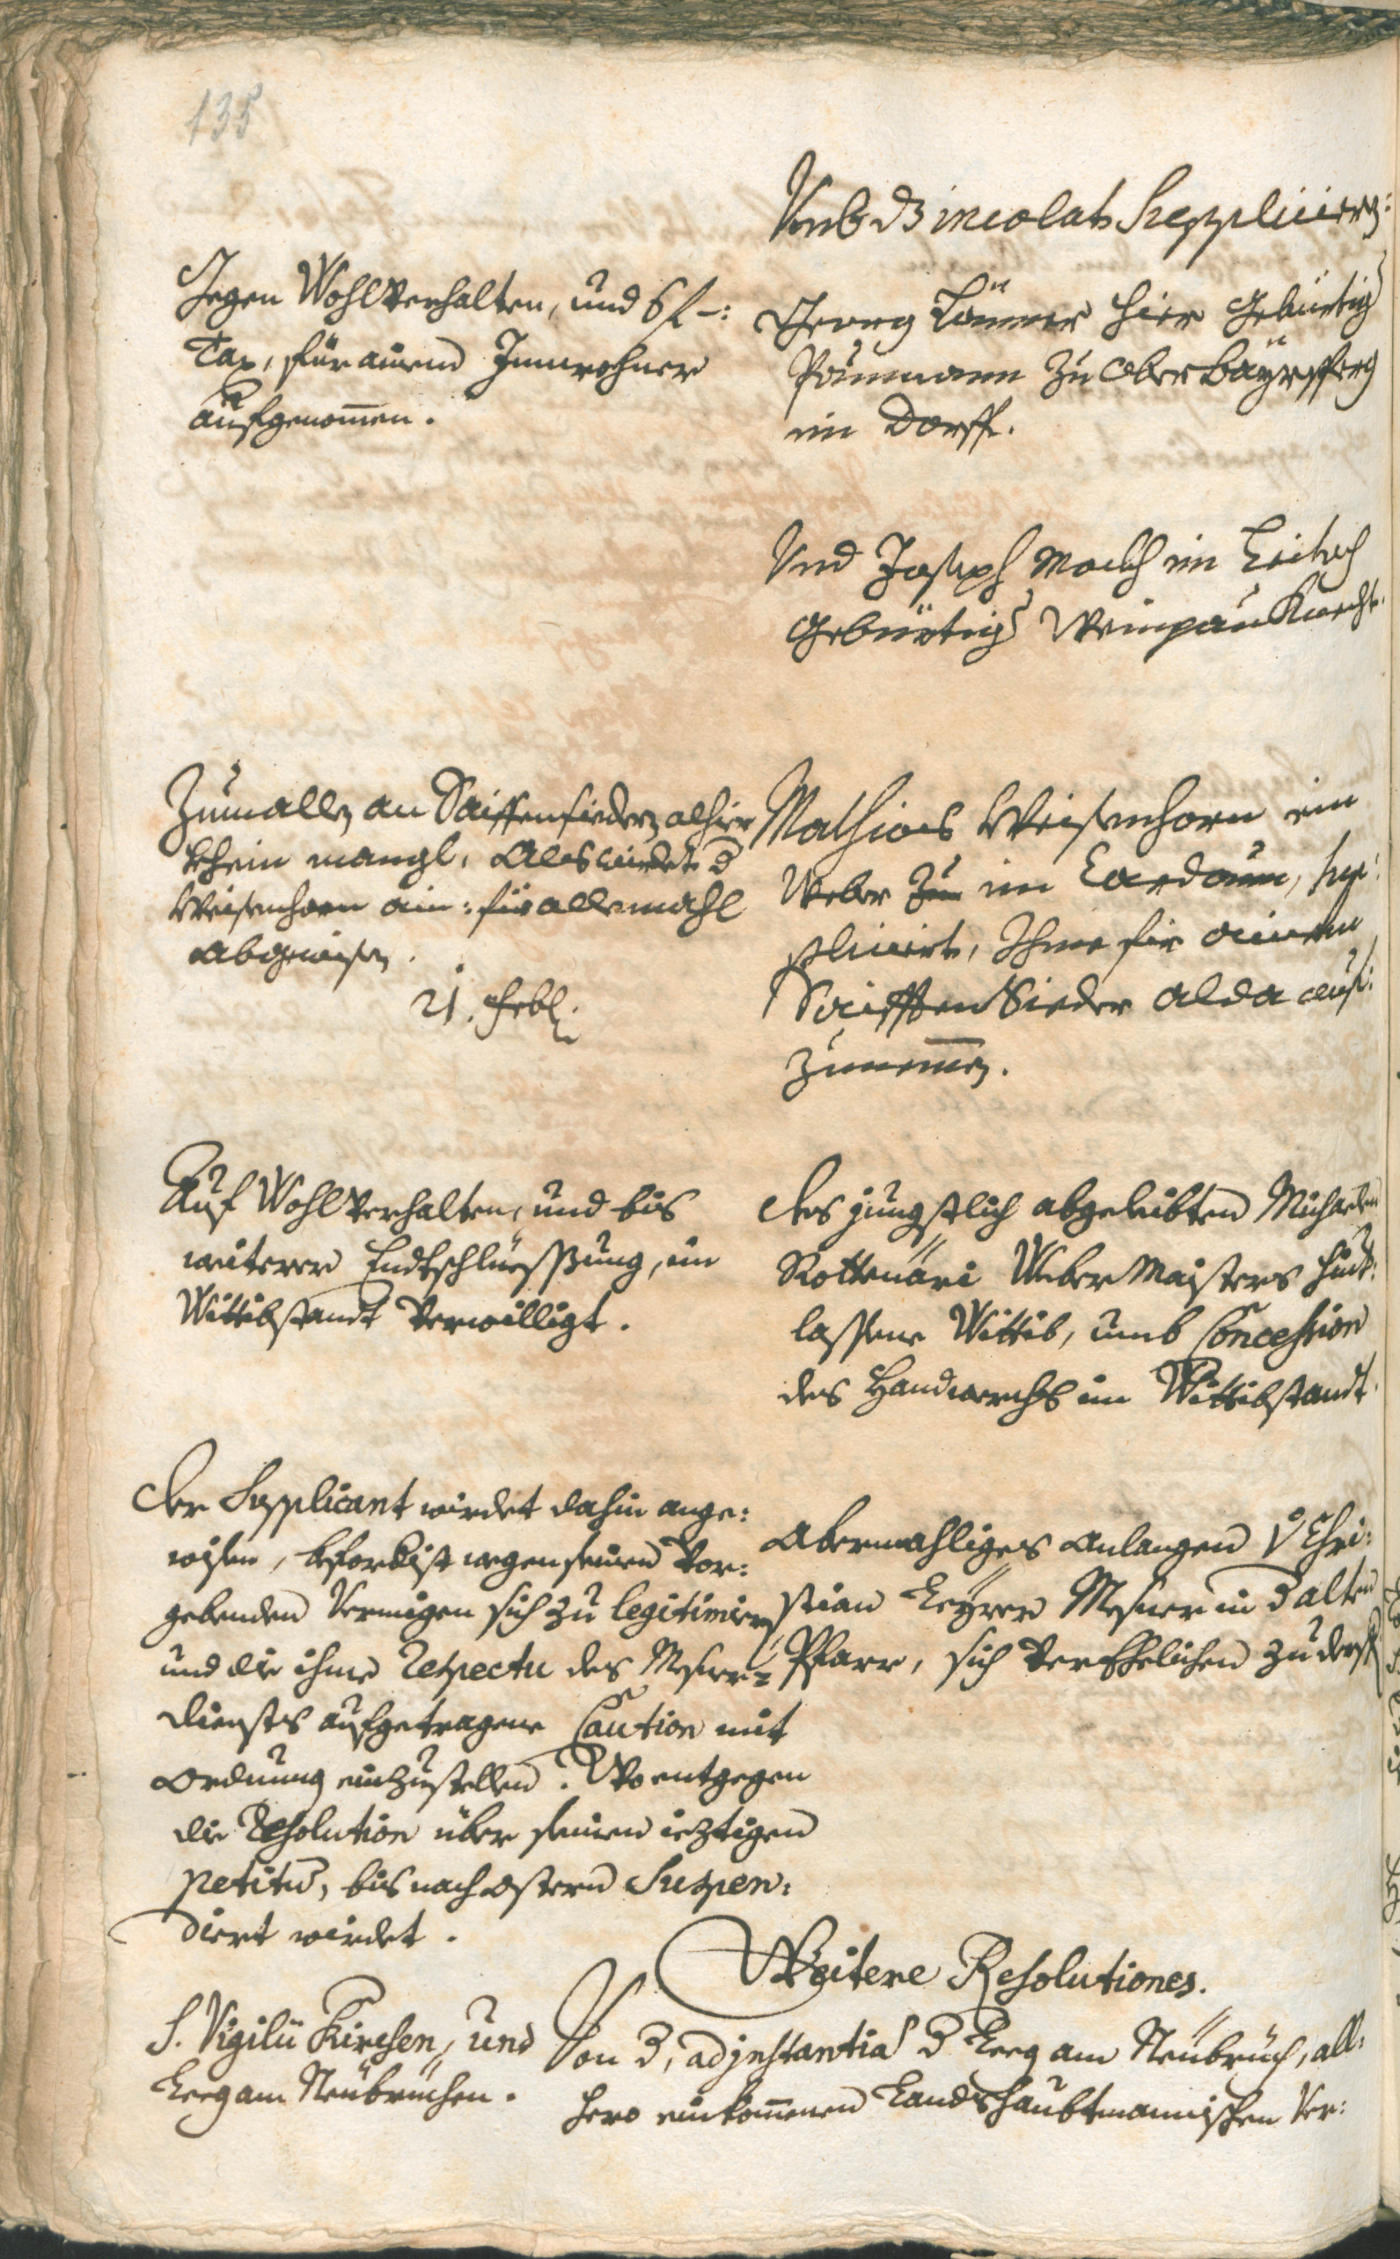 135
Umb dz incolats Supplicierg:
Gegen Wohlverhalten, und 6 f –:
Tax, für ainen Innwohner
aufgenomen.
Georg hier Gebürtig
Paumann zu
im Dorff.
Und Joseph im
Gebürtig Weinpau Knecht.
Zumallen an Saiffensiedern alhier
khein mangl, Als wirdet d
Weisenhorn ain: für allemahl
abgewisen.
21. Febr:
Mathias Weisenhorn ein
Weber zu im Cardaun, sup:
plicirt, Ihme für ainen
Saiffen Sieder alda auf:
zunemen.
Auf Wohlverhalten, und bis
weiterer Endtschliessung, im
Wittibstandt Verwilligt.
Des jüngstlich abgeleibten Michaelen
Rottenäri Weber Maisters hint:
lassene Wittib, umb Concession
des Handwerchs im Wittibstandt.
Der Supplicant wirdet dahin ange:
wisen, beforderist wegen seinen vor:
gebenden Vermigen sich zu legitimiern
und die ihme respectu des Mesner=
diensts aufgetragene Caution mit
ordnung einzustellen. Wo entgegen
die Resolution über seinen ieztigen
petitu, bis nach ostern Suspen:
diert wirdet.
Abermahliges Anlangen Chri:
stian Leyrer Mesner in d alten
Pfarr, sich Verehelichen zu derffen
Weitere Resolutiones.
S. Vigilii Kirchen, und
Leeg am Neubruchen.
Von d, ad instantia d Leeg am Neubruch, all:
hero einkomenen Landshaubtmannischen Ver: